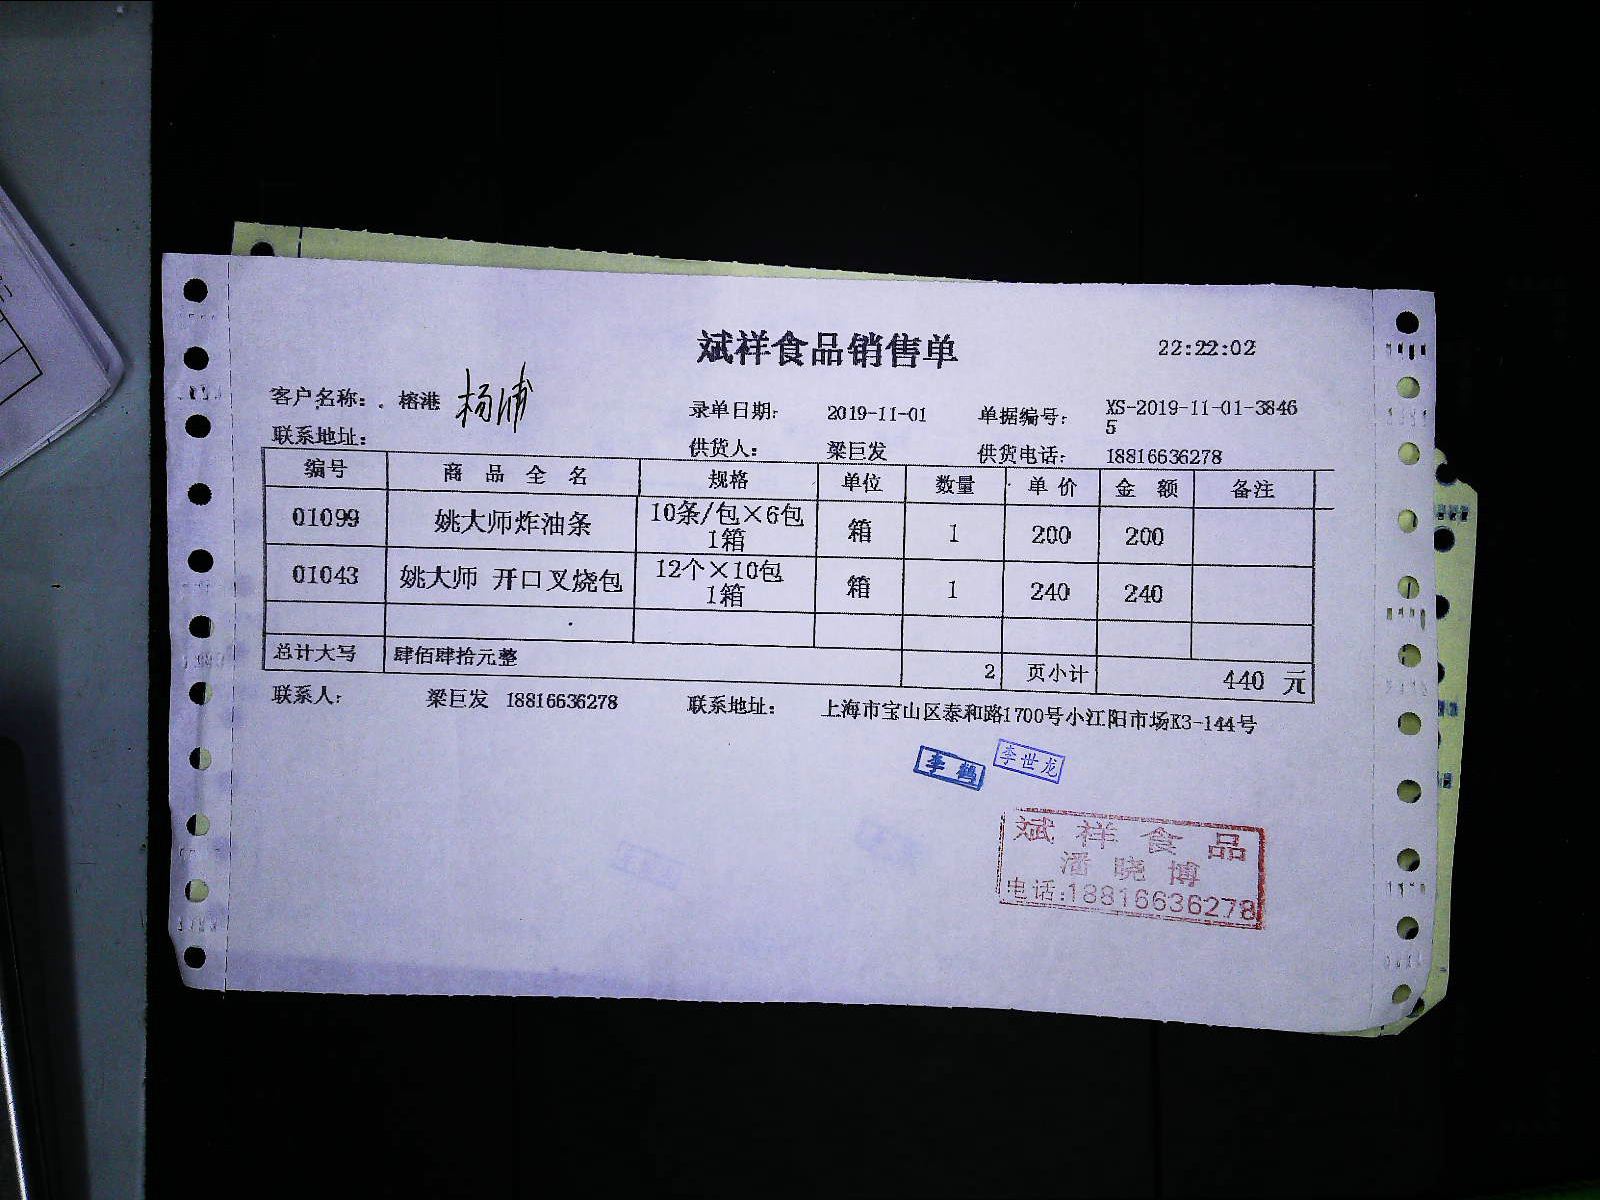 斌祥食品销售单
22:22:02
客户名称: . 榕港 杨浦
录单日期: 2019-11-01 单据编号: XS-2019-11-01-3846
5
联系地址:
供货人: 梁巨发 供货电话: 18816636278
编号 商品全名 规格 单位 数量 单价 金额 备注
01099 姚大师炸油条 10条/包×6包 箱 1 200 200
1箱
01043 姚大师 开口叉烧包 12个×10包 箱 1 240 240
1箱
总计大写 肆佰肆拾元整 2 页小计 440 元
联系人: 梁巨发 18816636278 联系地址: 上海市宝山区泰和路1700号小江阳市场K3-144号
李鹤 李世龙
斌祥食品
潘晓博
电话:18816636278